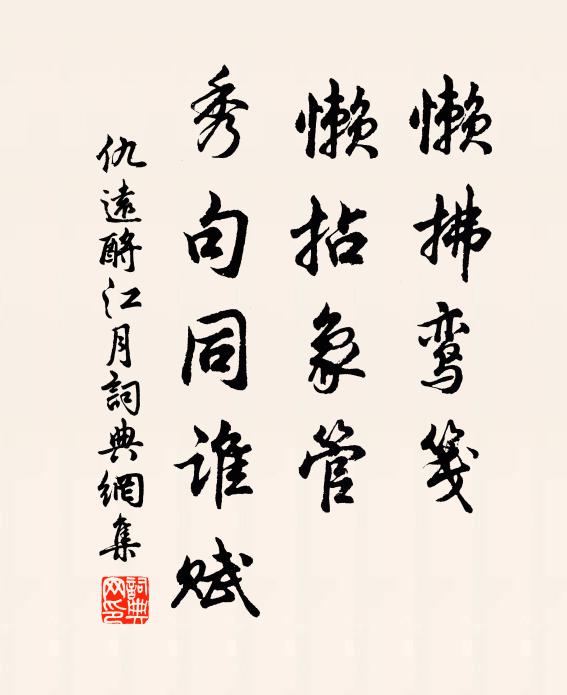 懒拂鸾笺
懒拈象管
秀句同谁赋
仇遠酹江月詞典網集
詞典網印